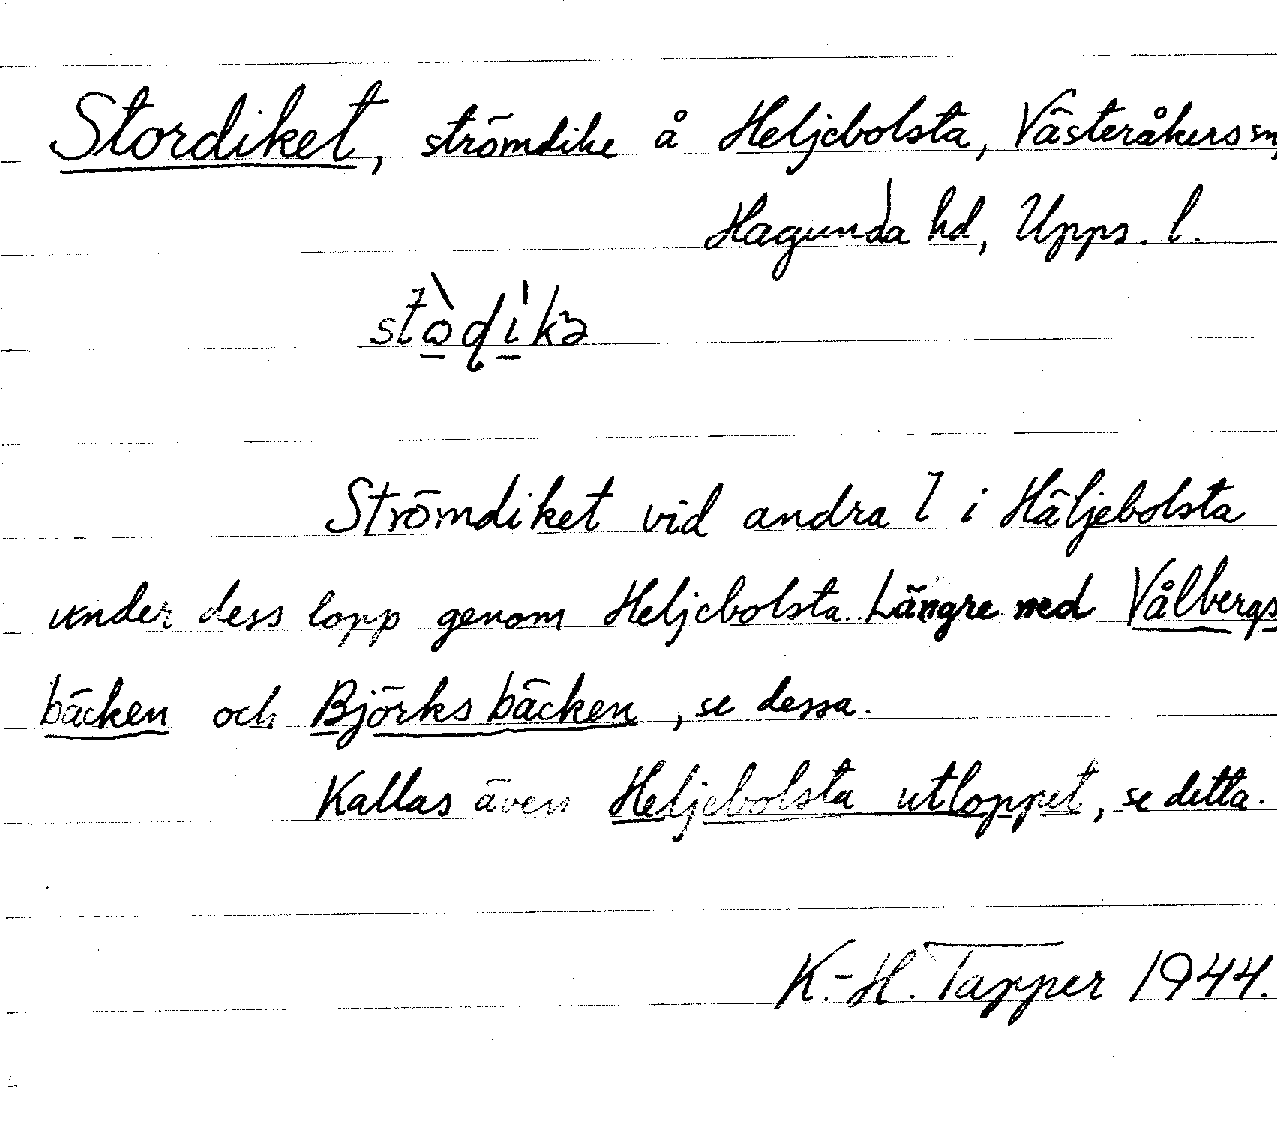 Stordiket, strömdike å Heljebolsta, Västeråkers sn,
Hagunda hd, Upps. l.
Strömdiket vid andra l i Häljebolsta
under dess lopp genom Heljebolsta. Längre ned Vålbergs
bäcken och Björksbäcken, se dessa.
Kallas även Heljebolsta utloppet, se detta.
K.-H. Tapper 1944.